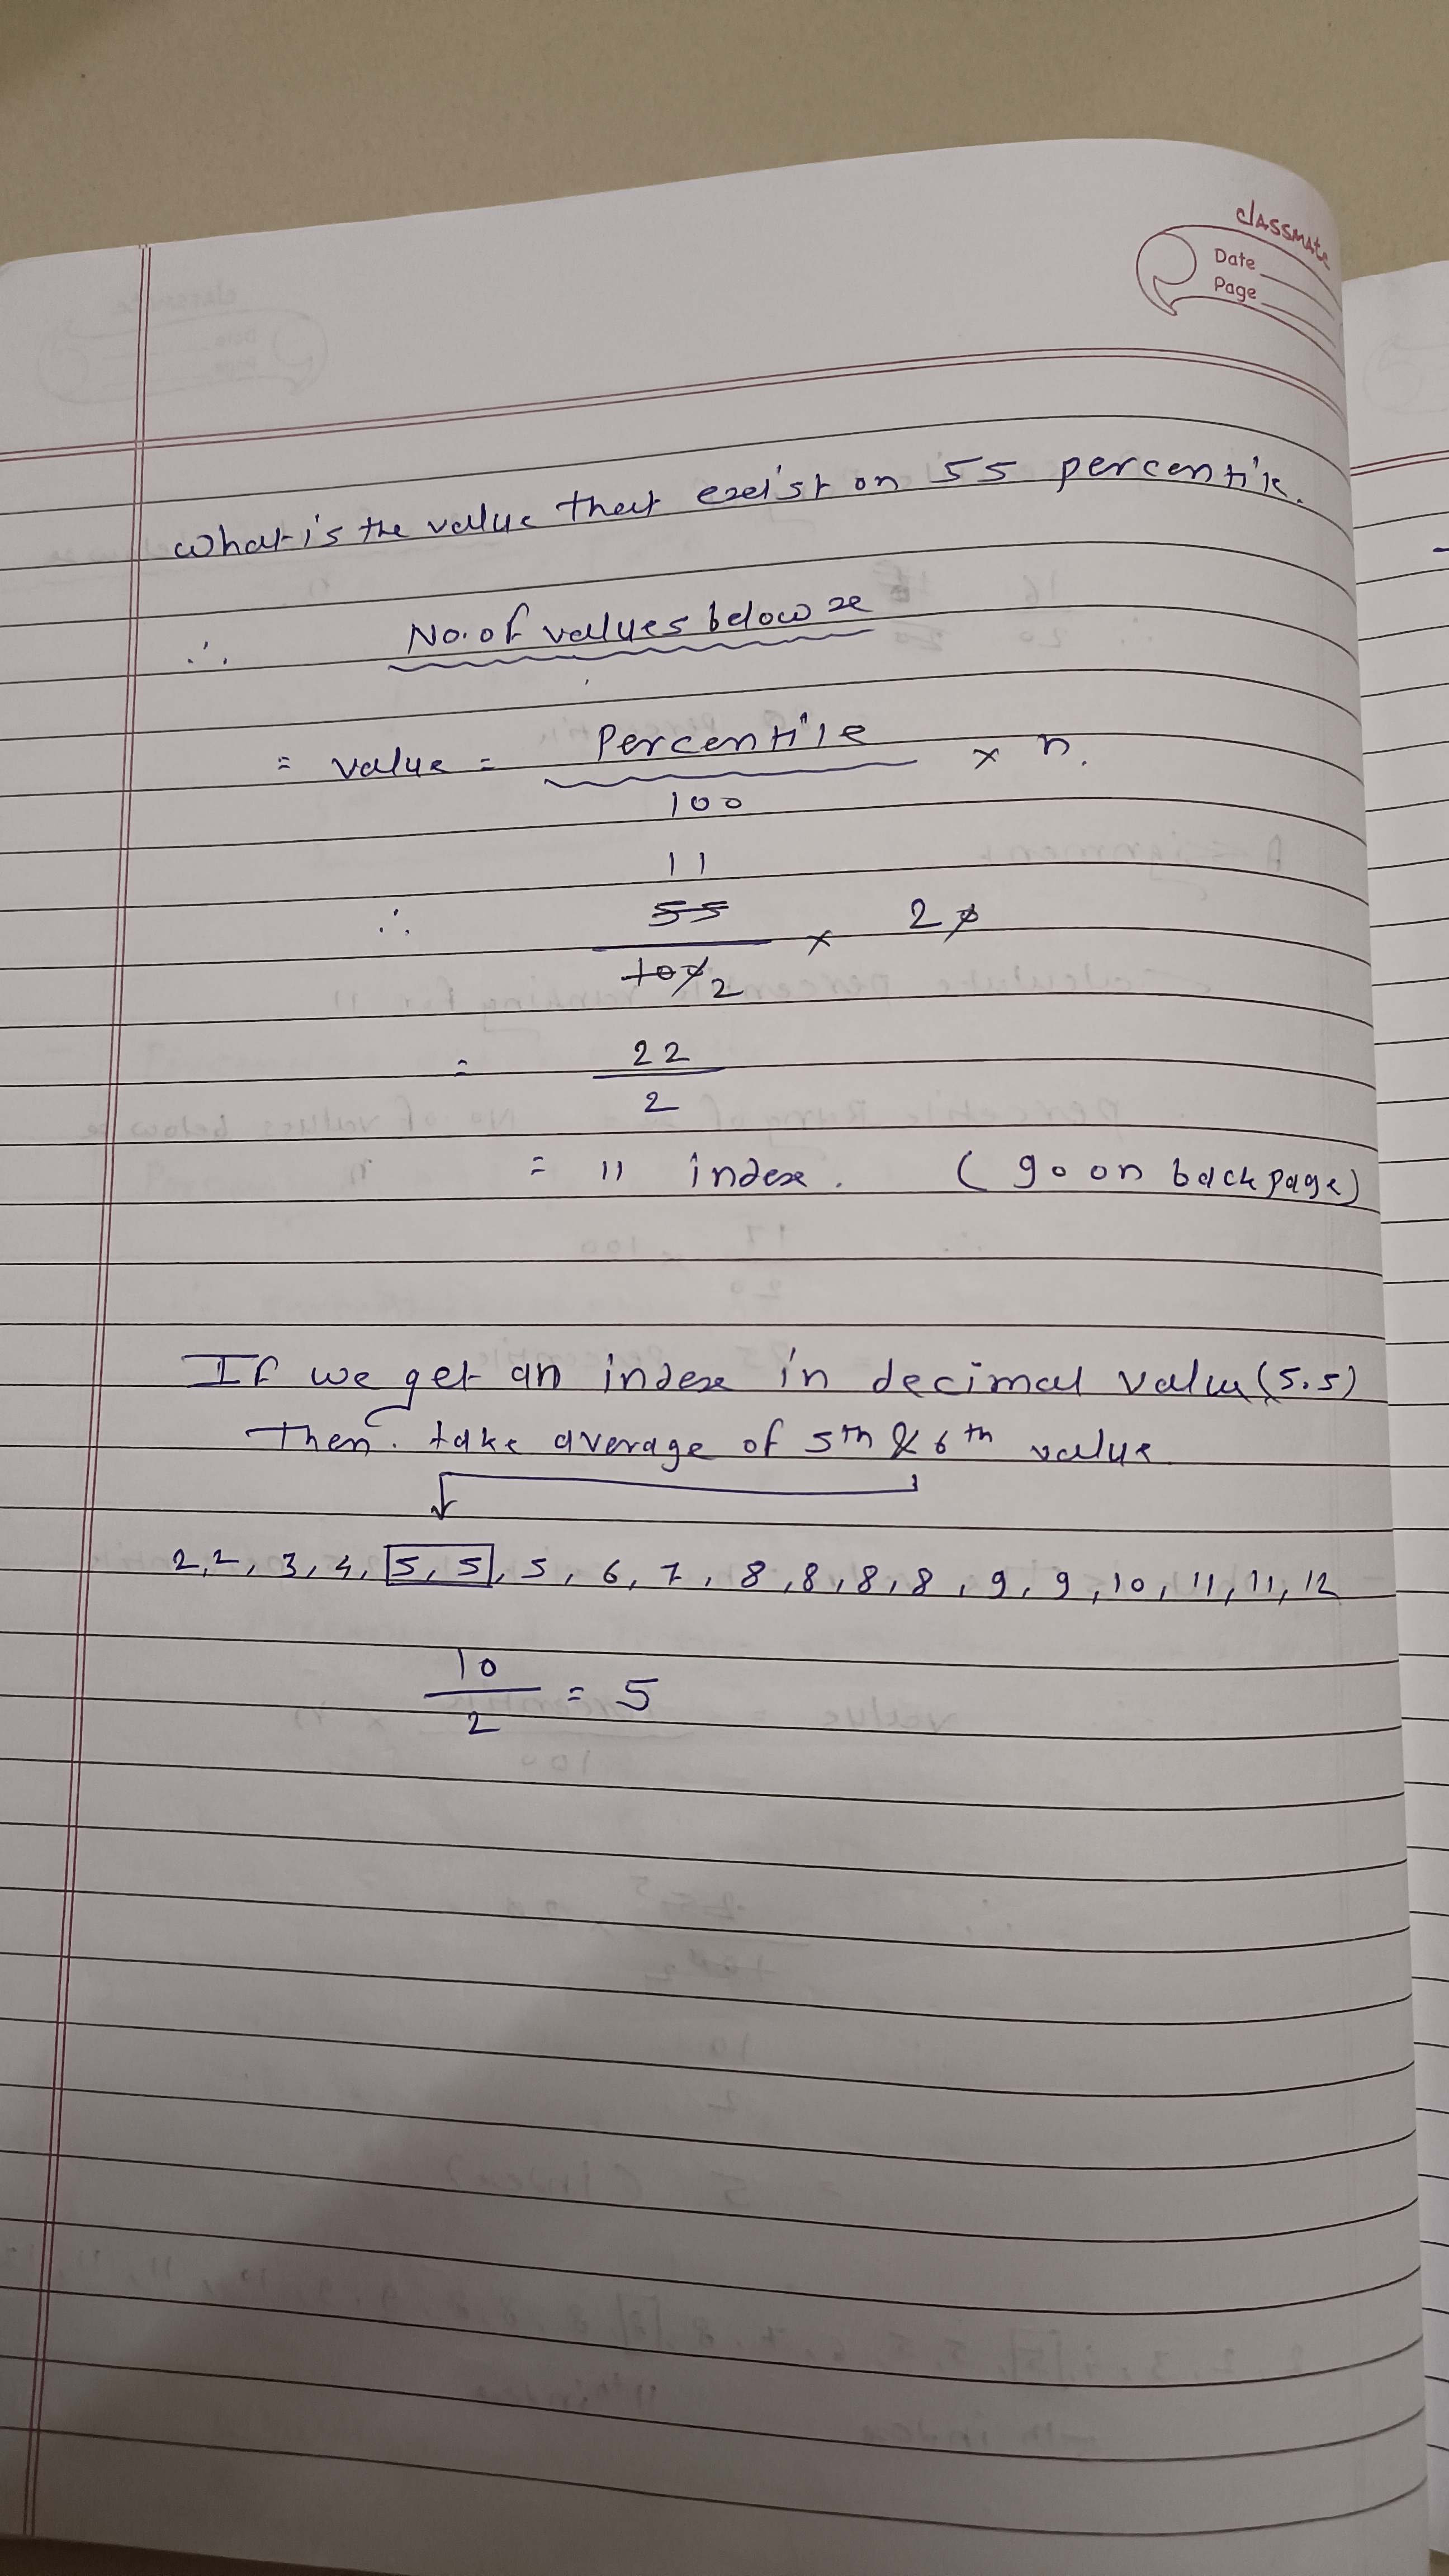 classmate
Date
Page
What is the value that exist on 55 percentile.
∴ No. of values below x
= value = Percentile / 100 × n.
11
∴ 55 / 100 2 × 20
= 22 / 2
= 11 index. (go on back page)
If we get an index in decimal value (5.5)
Then. take average of 5th & 6th value
2, 2, 3, 4, 5, 5, 5, 6, 7, 8, 8, 8, 8, 9, 9, 10, 11, 11, 12
10 / 2 = 5